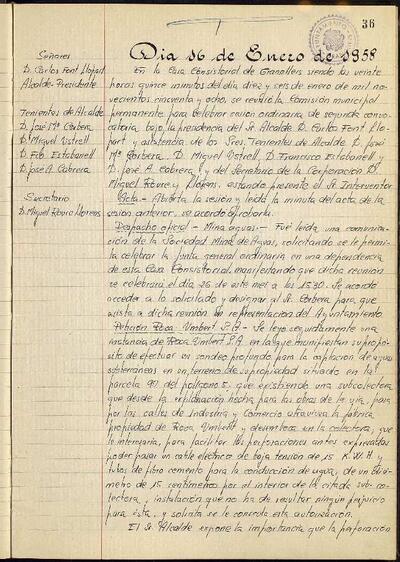 36
Dia 16 de Enero de 1958
Señores
D. Carlos Font Llopart
Alcalde-Presidente
Tenientes de Alcalde
D. José Mª Corbera
D. Miguel Ustrell
D. Fco Estabanell
D. José A. Cabrera
Secretario
D. Miguel Roura Llorens
En la Casa Consistorial de Granollers siendo las veinte
horas quince minutos del día diez y seis de enero de mil no-
vecientos cincuenta y ocho, se reunió la Comisión municipal
permanente para celebrar sesión ordinaria de segunda convo-
catoria bajo la presidencia del Sr. Alcalde D. Carlos Font Llo-
part y asistencia de los Sres. Tenientes de Alcalde D. José
Mª Corbera, D. Miguel Ustrell, D. Francisco Estabanell y
D. José A. Cabrera y del Secretario de la Corporación D.
Miguel Roura y Llorens, estando presente el Sr. Interventor
Acta.- Abierta la sesión y leída la minuta del acta de la
sesión anterior, se acordó aprobarla.
Despacho oficial - Mina aguas.- Fué leída una comunica-
ción de la Sociedad Mina de Aguas, solicitando se le permi-
ta celebrar la Junta general ordinaria en una dependencia
de esta Casa Consistorial, manifestando que dicha reunión
se celebrará el día 26 de este mes a las 15.30. Se acordó
acceder a lo solicitado y designar al Sr. Corbera para que
asista a dicha reunión en representación del Ayuntamiento.
Petición Roca Umbert S.A.- Se leyó seguidamente una
instancia de Roca Umbert S.A. en la que manifiestan su propó-
sito de efectuar un sondeo profundo para la captación de aguas
subterráneas en un terreno de su propiedad situado en la
parcela 90 del polígono 5, que existiendo una subcolectora
que desde la explanación hecha para las obras de la vía, para
por las calles de Industria y Comercio atraviesa la fábrica
propiedad de Roca Umbert y desemboca en la colectora, que
le interesaría, para facilitar las perforaciones antes expresadas
poder pasar un cable eléctrico de baja tensión de 15 K.W.H. y
tubos de fibro cemento para la conducción de agua, de un diá-
metro de 15 centímetros por el interior de la citada sub-co-
lectora, instalación que no ha de resultar ningún perjuicio
para ésta, y solicita se le conceda esta autorización.
El Sr. Alcalde expone la importancia que la perforación